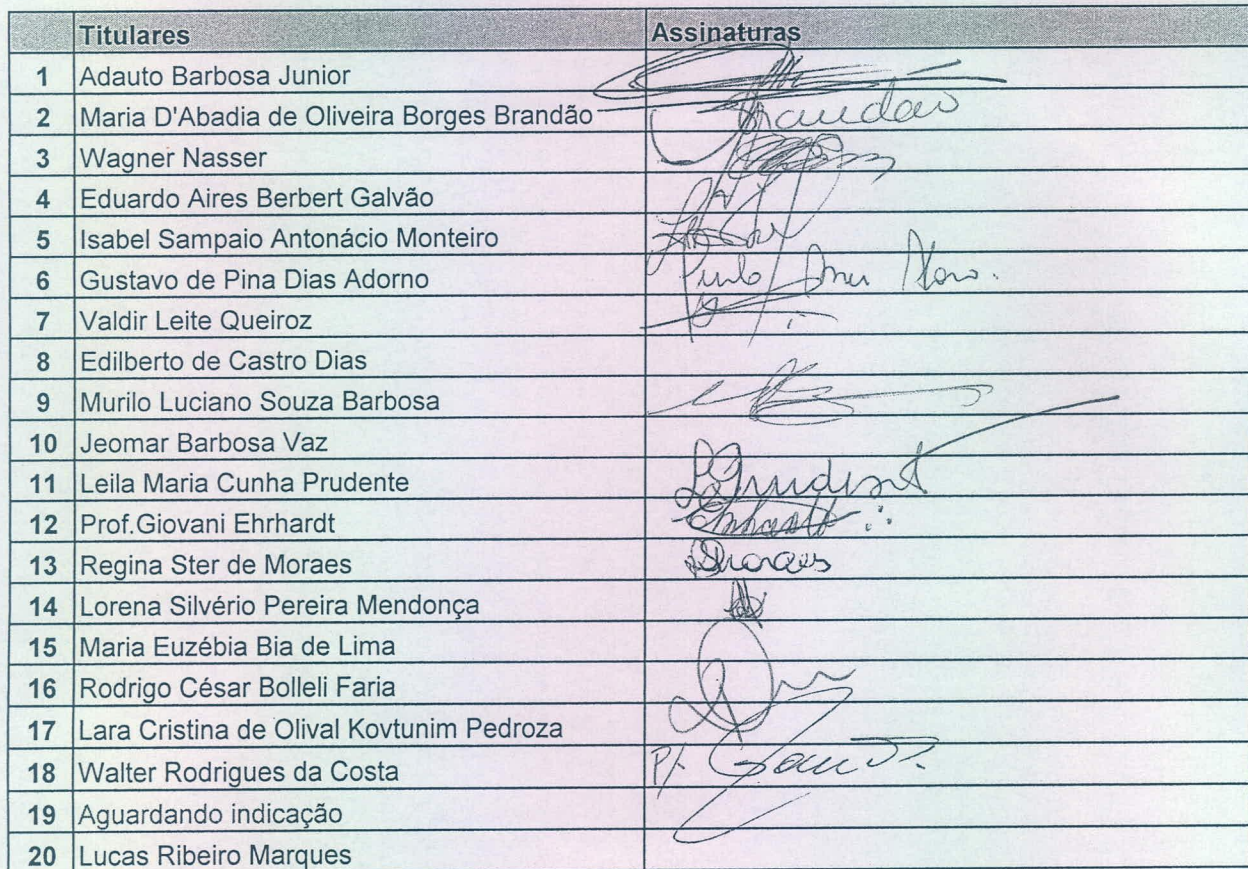 Titulares Assinaturas
1 Adauto Barbosa Junior
2 Maria D'Abadia de Oliveira Borges Brandão Brandão
3 Wagner Nasser
4 Eduardo Aires Berbert Galvão
5 Isabel Sampaio Antonácio Monteiro
6 Gustavo de Pina Dias Adorno
7 Valdir Leite Queiroz
8 Edilberto de Castro Dias
9 Murilo Luciano Souza Barbosa
10 Jeomar Barbosa Vaz
11 Leila Maria Cunha Prudente Prudente
12 Prof.Giovani Ehrhardt
13 Regina Ster de Moraes Moraes
14 Lorena Silvério Pereira Mendonça
15 Maria Euzébia Bia de Lima
16 Rodrigo César Bolleli Faria
17 Lara Cristina de Olival Kovtunim Pedroza
18 Walter Rodrigues da Costa P/.
19 Aguardando indicação
20 Lucas Ribeiro Marques